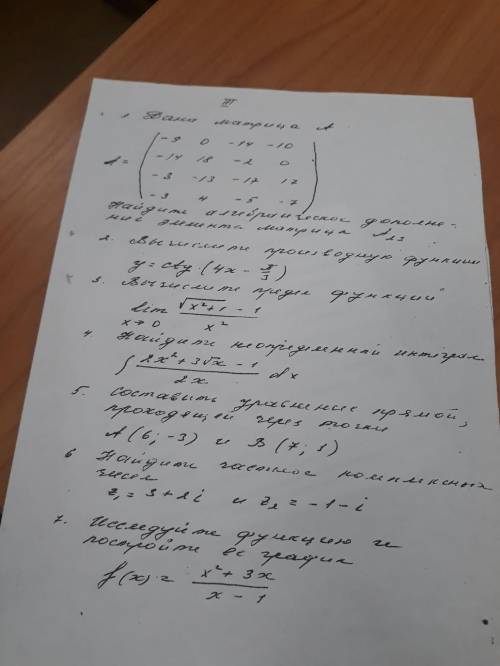 III
1. Дана матрица A
A = ( -9 0 -14 -10
-14 18 -2 0
-3 -13 -17 17
-3 4 -5 -7 )
Найдите алгебраическое дополне-
ний элемента матрица A₂₃
2. Вычислите производную функции
y = ctg (4x - π/3)
3. Вычислите предел функции
lim (√(x²+1) - 1) / x²
x→0
4. Найдите неопределенный интеграл
∫ (2x² + 3√x - 1) / 2x dx
5. Составить уравнение прямой,
проходящей через точки
A (6; -3) и B (7; 1)
6 Найдите частное комплексных
чисел
z₁ = 3 + 2i и z₂ = -1 - i
7. Исследуйте функцию и
постройте ее график
f(x) = (x² + 3x) / (x - 1)